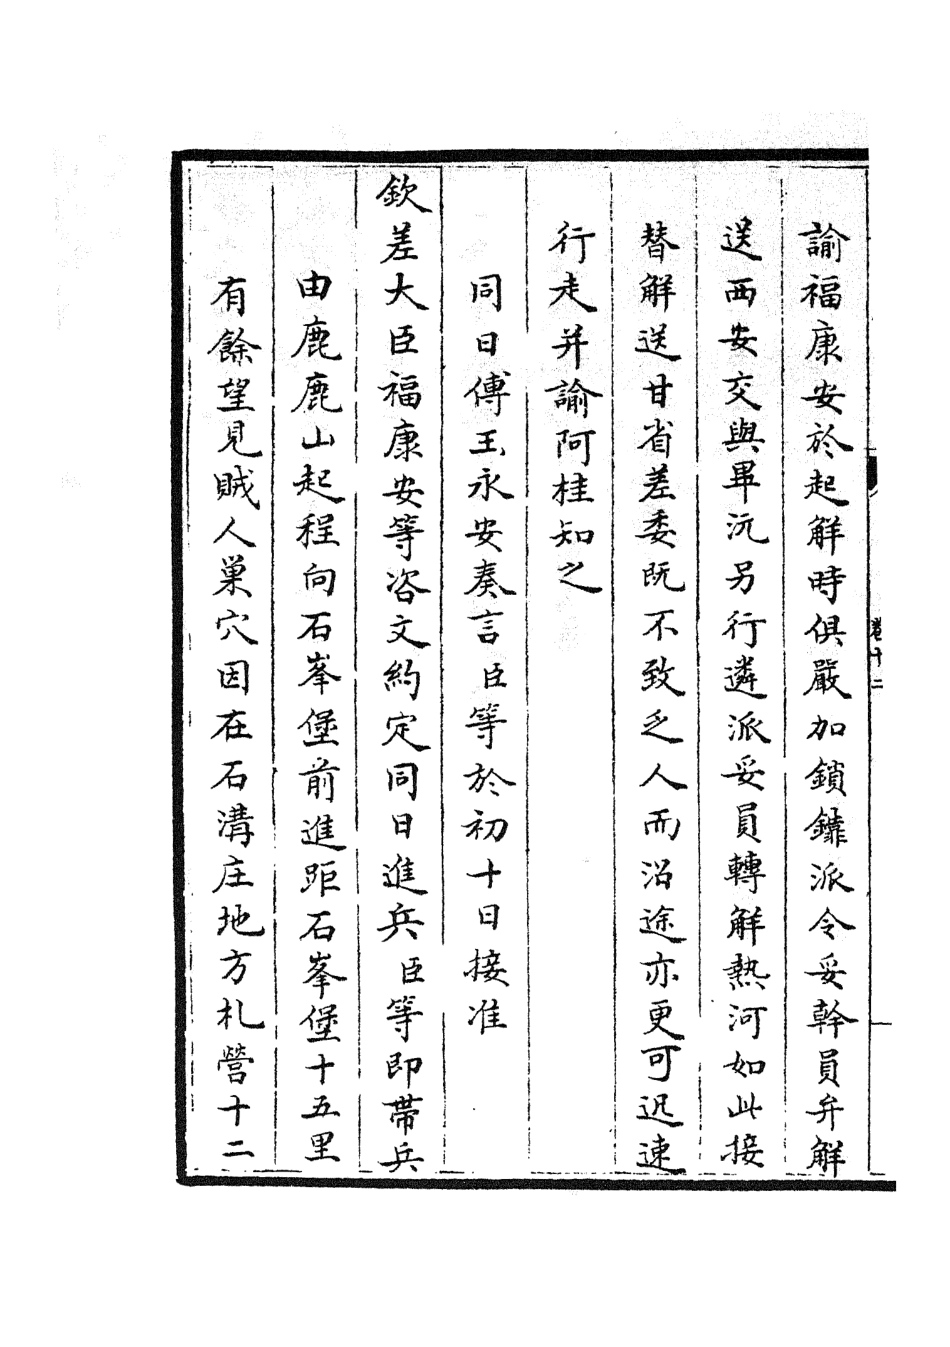 諭福康安於起解時俱嚴加鎖鐐派令妥幹員弁解
送西安交與畢沅另行遴派妥員轉解熱河如此接
替解送甘省差委既不致乏人而沿途亦更可迅速
行走并諭阿桂知之
同日傅玉永安奏言臣等於初十日接准
欽差大臣福康安等咨文約定同日進兵臣等即帶兵
由鹿鹿山起程向石峯堡前進距石峯堡十五里
有餘望見賊人巢穴因在石溝庄地方札營十二
卷十二